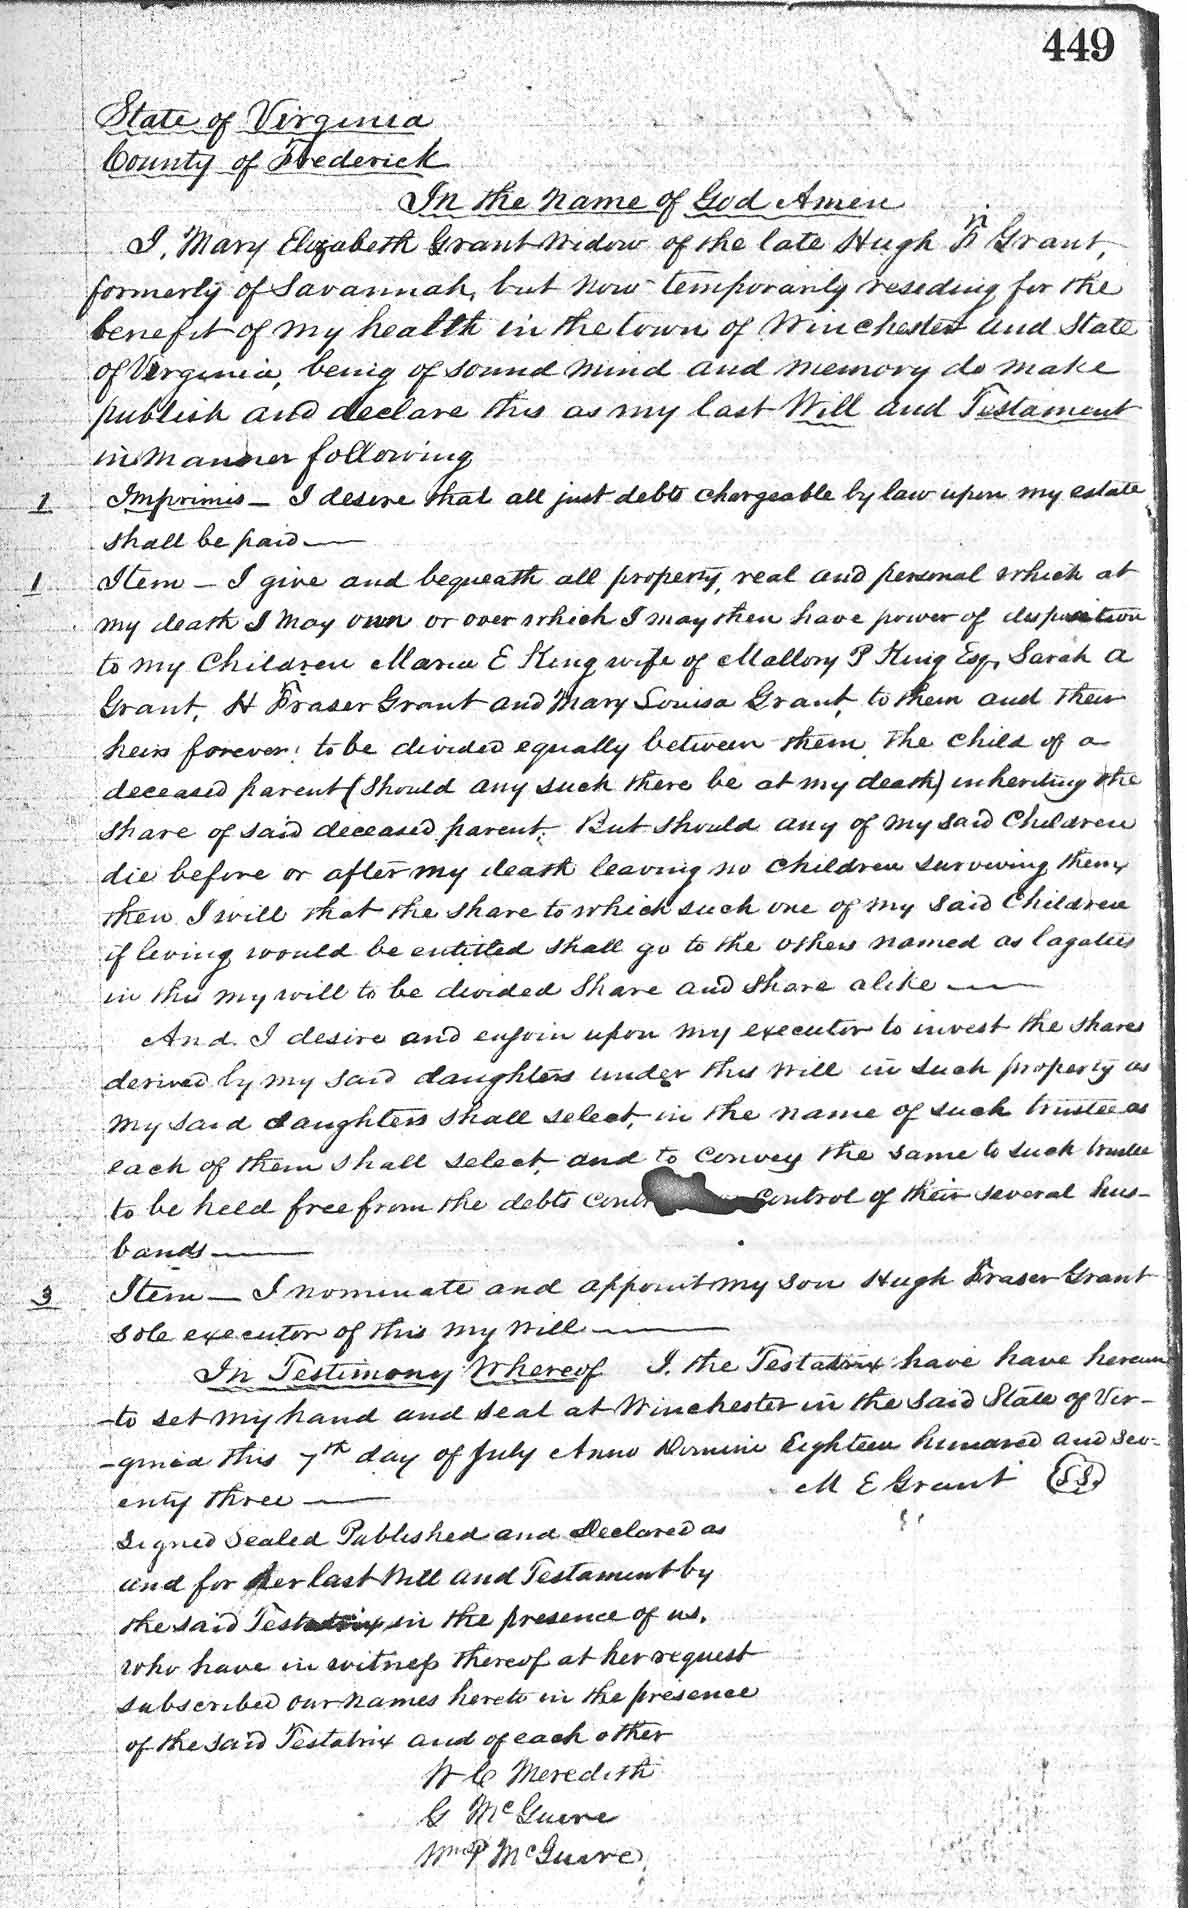 449
State of Virginia
County of Frederick
In the name of God Amen
I, Mary Elizabeth Grant widow of the late Hugh Fr Grant,
formerly of Savannah, but now temporarily reseding for the
benefit of my health in the town of Winchester and State
of Virginia, being of sound mind and memory do make
publish and declare this as my last Will and Testament
in manner following
1 Imprimis - I desire that all just debts chargeable by law upon my estate
shall be paid —
1 Item - I give and bequeath all property, real and personal which at
my death I may own or over which I may then have power of disposition
to my Children Maria E King wife of Mallory P King Esq, Sarah A
Grant, H Fraser Grant and Mary Louisa Grant, to them and their
heirs forever: to be divided equally between them, the child of a
deceased parent (should any such there be at my death) inheriting the
share of said deceased parent. But should any of my said Children
die before or after my death leaving no children surviving them,
then I will that the share to which such one of my said Children
if living would be entitled shall go to the others named as lagatees
in this my will to be divided share and share alike —
And I desire and enjoin upon my executor to invest the shares
derived by my said daughters under this will in such property as
my said daughters shall select, in the name of such trustee as
each of them shall select, and to convey the same to such trustee
to be held free from the debts control of their several hus-
bands —
3 Item — I nominate and appoint my son Hugh Fraser Grant
sole executor of this my will —
In Testimony Whereof I, the Testatrix have have hereun
-to set my hand and seal at Winchester in the said State of Vir-
-ginia this 7th day of July Anno Domini Eighteen hundred and sev-
enty three — M E Grant
Signed Sealed Published and Declared as
and for her last Will and Testament by
the said Testatrix in the presence of us,
who have in witness thereof at her request
subscribed our names hereto in the presence
of the said Testatrix and of each other
W C Meredith
G McGuire
Wm P McGuire